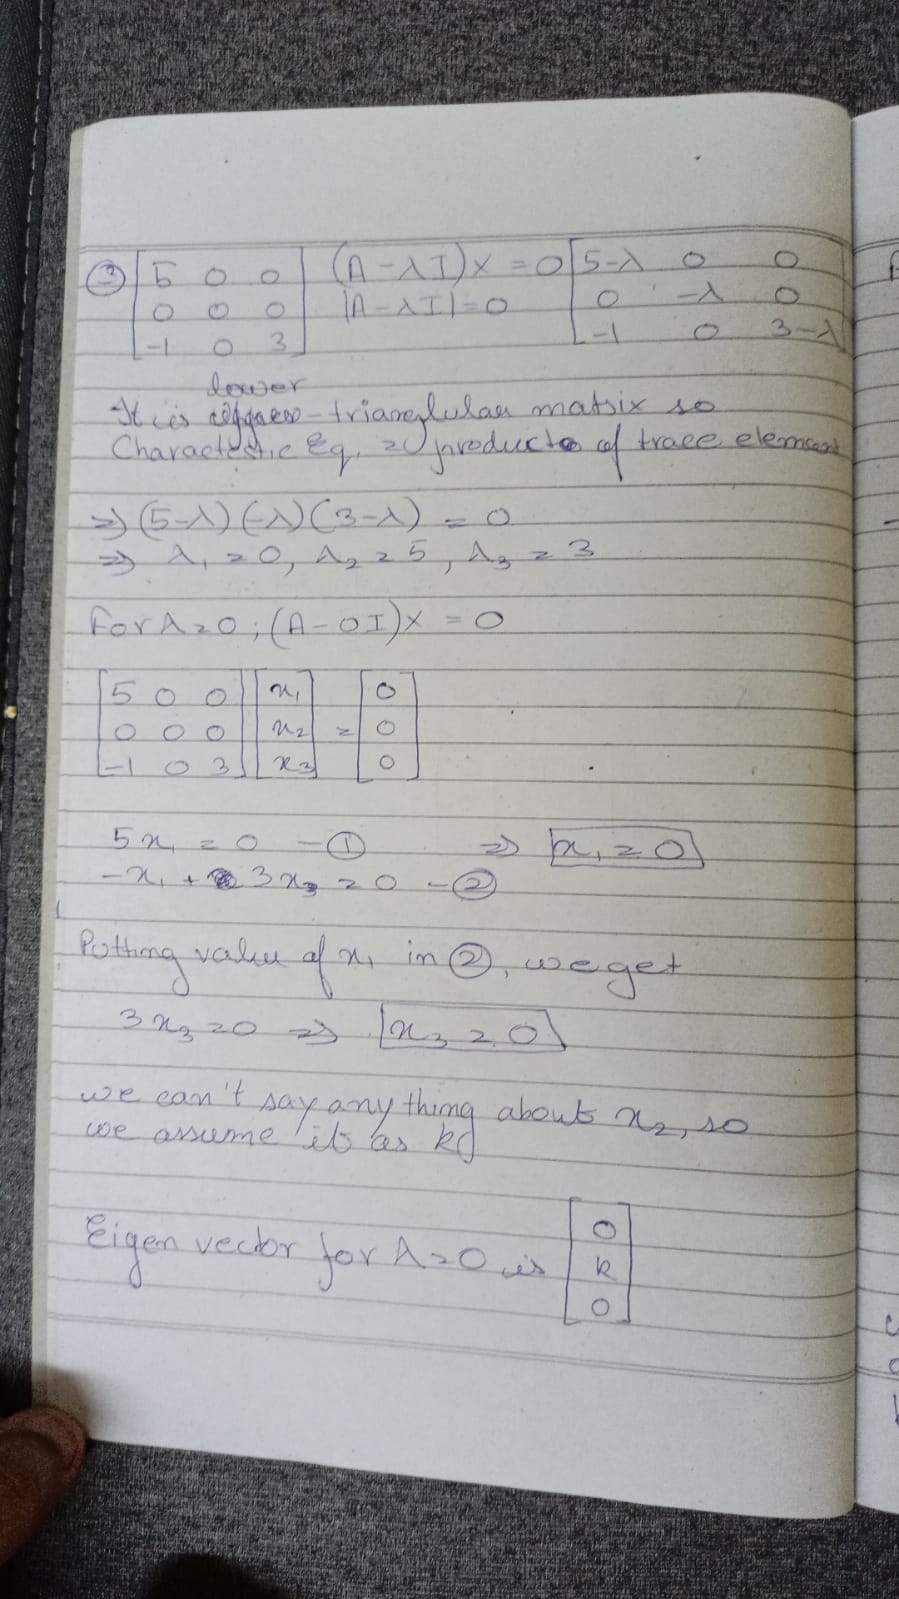 ③ [5 0 0 (A-λI)X = 0 [5-λ 0 0
0 0 0 |A-λI|=0 0 -λ 0
-1 0 3] -1 0 3-λ]
lower
It is triangular matrix so
Characteristic Eq. = product of trace element
⇒ (5-λ)(-λ)(3-λ) = 0
⇒ λ₁ = 0, λ₂ = 5, λ₃ = 3
For λ=0; (A-0I)X = 0
[5 0 0 [x₁ [0
0 0 0 x₂ = 0
-1 0 3] x₃] 0]
5x₁ = 0 -① ⇒ x₁ = 0
-x₁ + 3x₃ = 0 -②
Putting value of x₁ in ②, we get
3x₃ = 0 ⇒ x₃ = 0
we can't say any thing about x₂, so
we assume it as k
Eigen vector for λ=0 is [0
k
0]